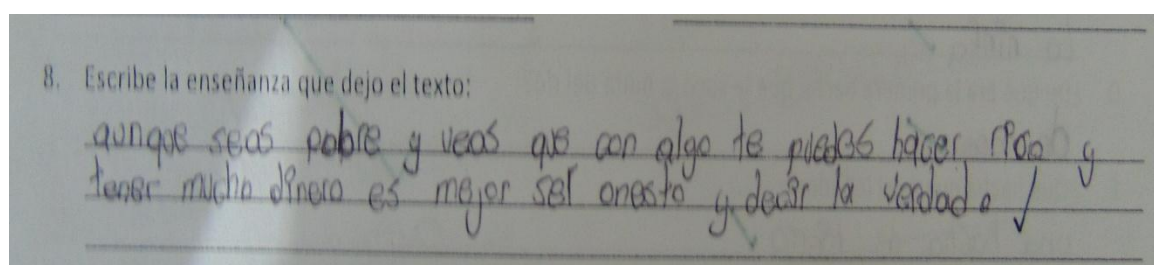 8. Escribe la enseñanza que dejo el texto:
aunque seas pobre y veas que con algo te puedes hacer rico y
tener mucho dinero es mejor ser onesto y decir la verdad.